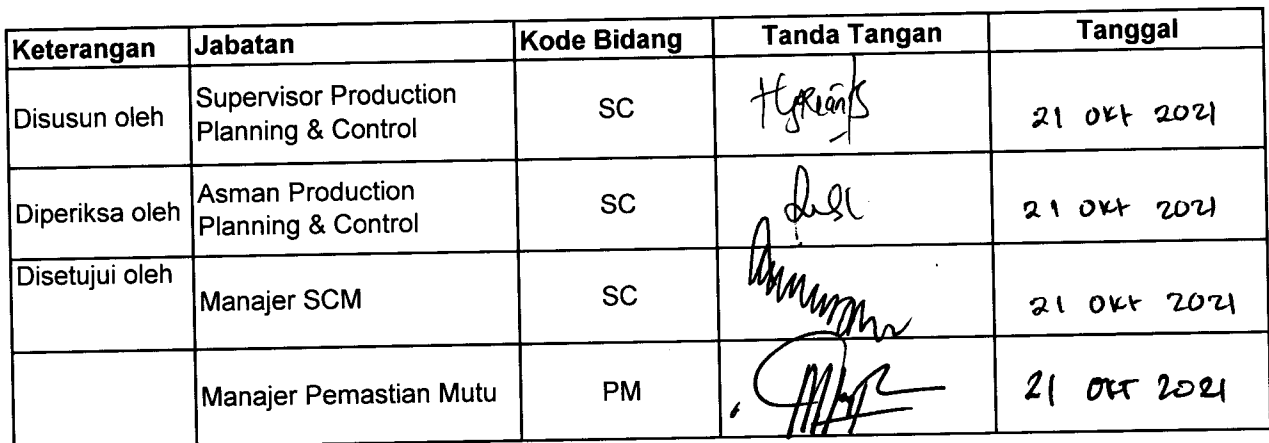 Keterangan Jabatan Kode Bidang Tanda Tangan Tanggal
Disusun oleh Supervisor Production Planning & Control SC 21 Okt 2021
Diperiksa oleh Asman Production Planning & Control SC 21 Okt 2021
Disetujui oleh Manajer SCM SC 21 Okt 2021
Manajer Pemastian Mutu PM 21 OKT 2021